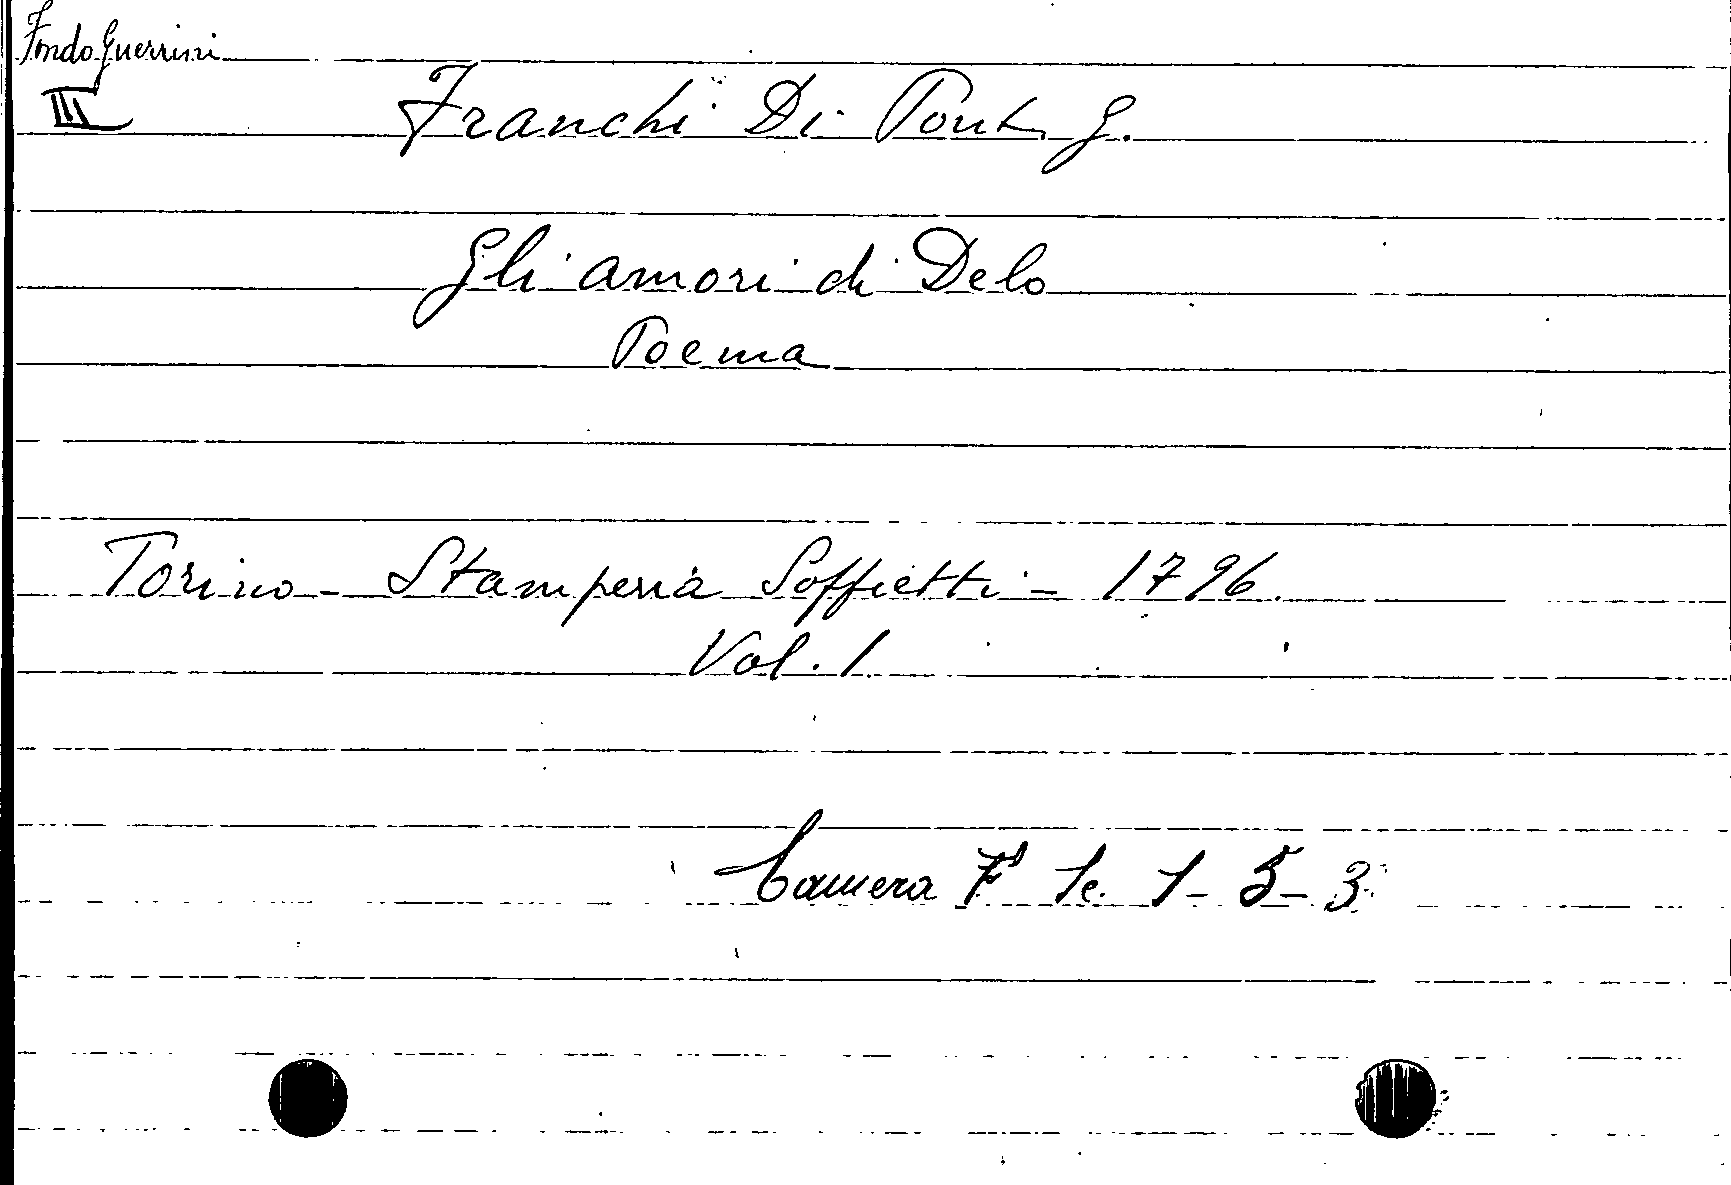 Fondo Guerrini
III Franchi Di Pont. G.
Gli amori di Delo
Poema
Torino - Stamperia Soffietti - 1796.
Vol. 1.
Camera Fª Sc. 1 - 5 - 3